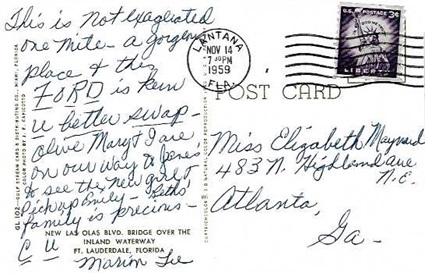 This is Not exagerated
one mite - a gorgeous
place & this
FORD is keen
U better swap -
Olive Mary & I are
on our way to Jones'
to see the new girl &
Pick up family - Beths'
family is precious -
C U
Marion Lee
GL 102
NEW LAS OLAS BLVD. BRIDGE OVER THE
INLAND WATERWAY
FT. LAUDERDALE, FLORIDA
LANTANA
NOV 14
7 30 PM
1959
FLA.
U.S. POSTAGE
3¢
LIBERTY
POST CARD
Miss Elizabeth Maynard
483 N. Highland Ave
N.E.
Atlanta,
Ga-